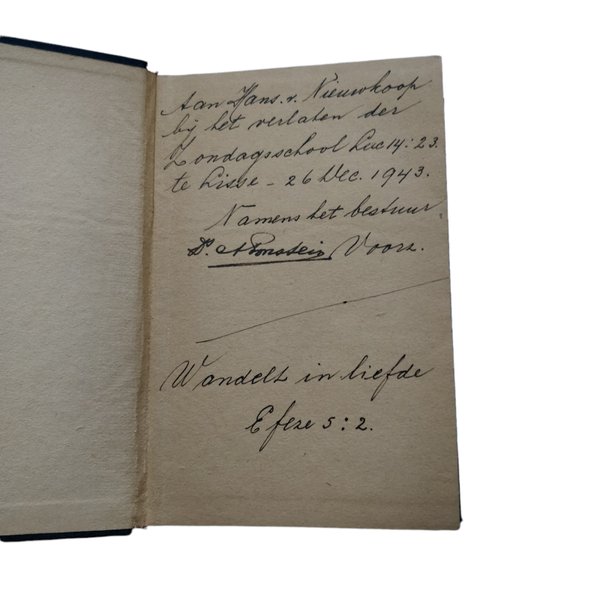 Aan Hans. v. Nieuwkoop
bij het verlaten der
Zondagsschool Luc 14: 23.
te Lisse - 26 Dec. 1943.
Namens het bestuur
Voorz.
Wandelt in liefde
Efeze 5: 2.